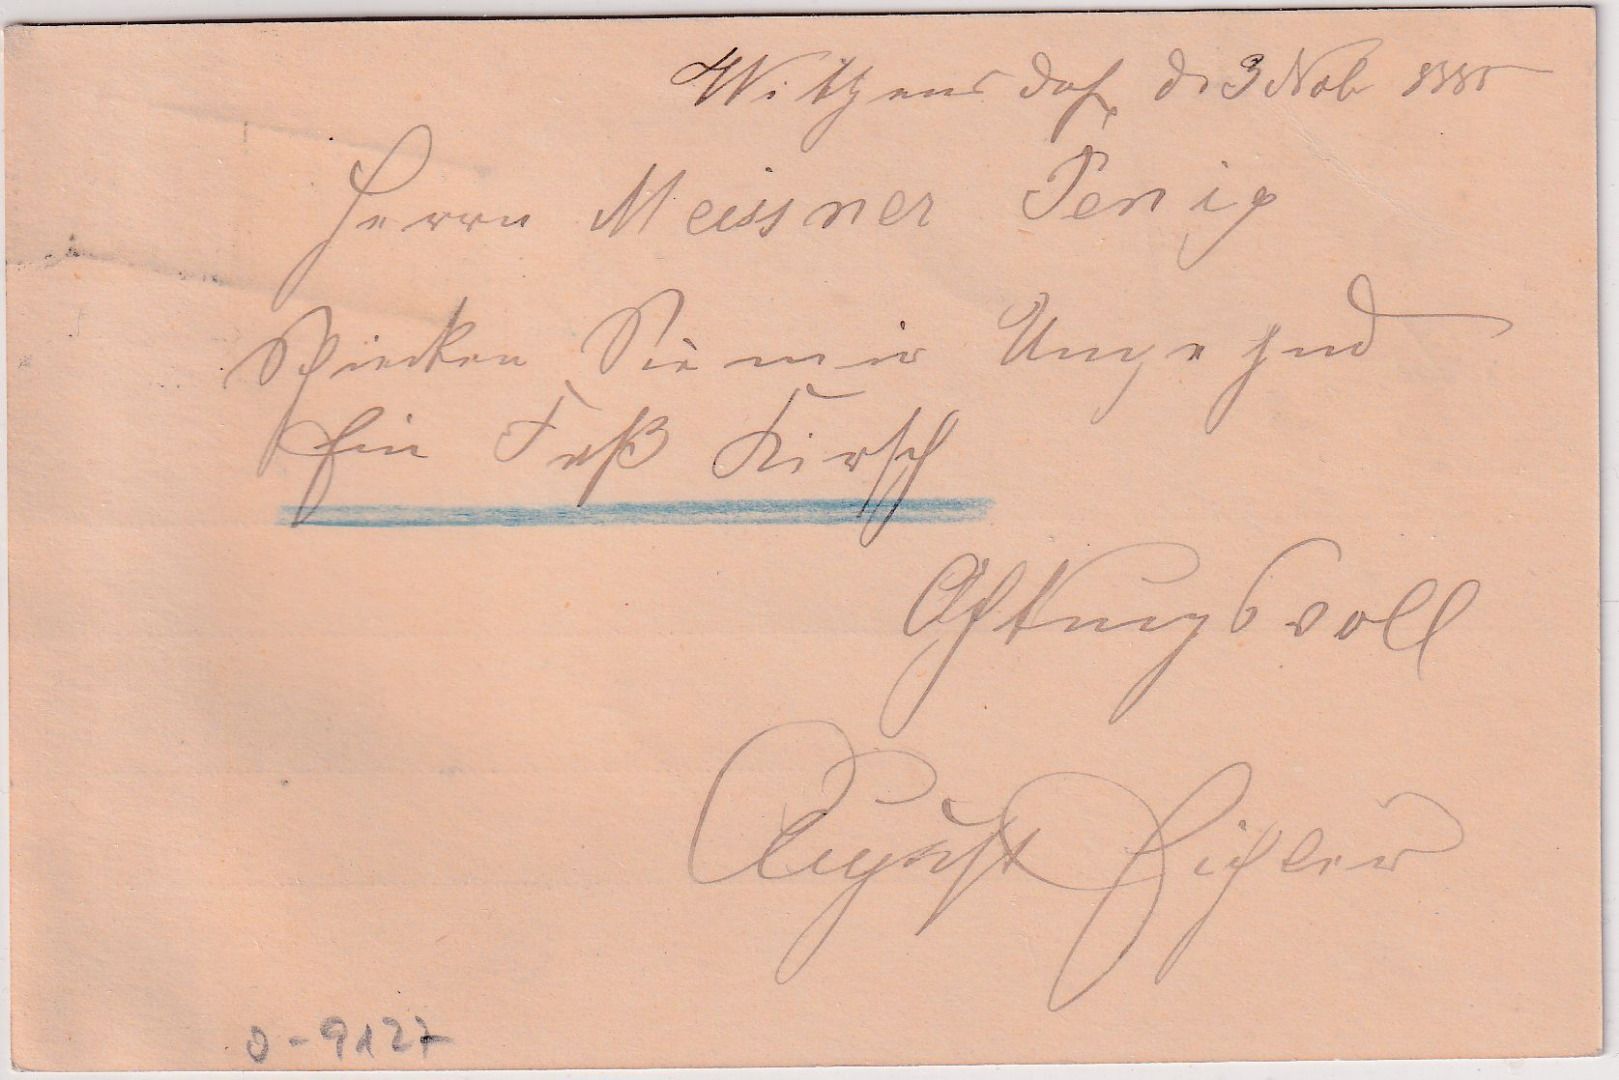 Witzensdof, d. 3 Nob 1885
Herrn Meissner Penig
Schicken Sie mir Umgehnd
Ein Faß Kirsch
Achtungsvoll
August Eichler
D-9127